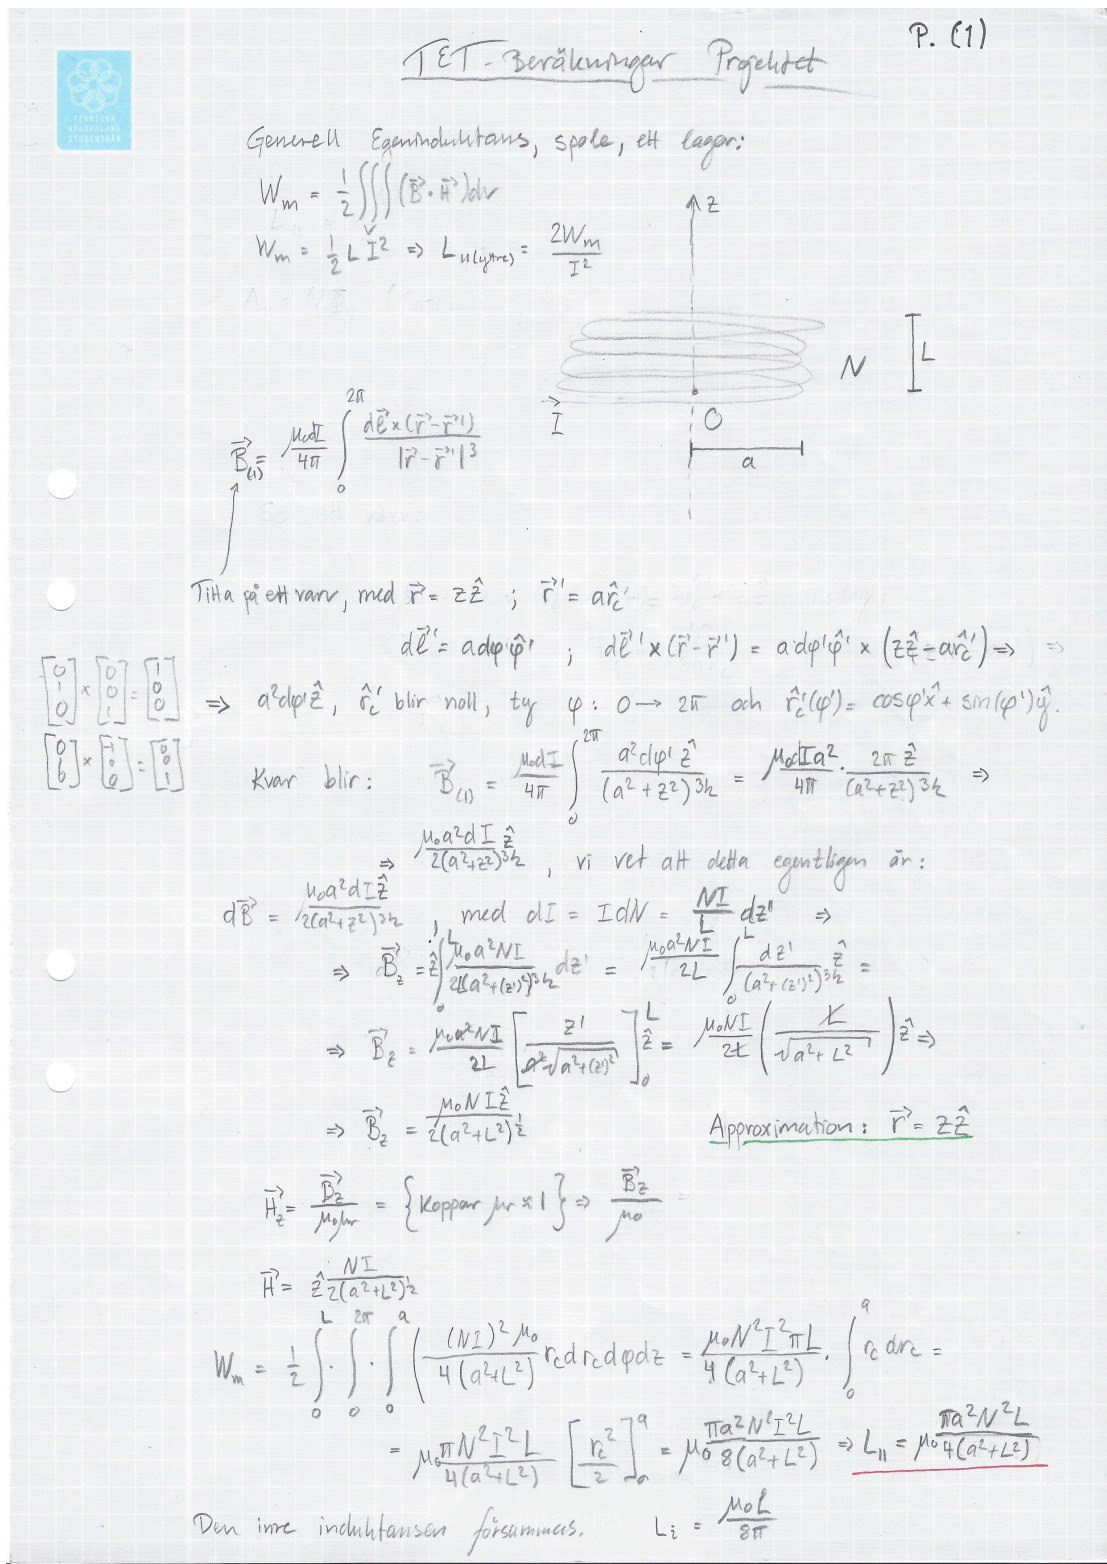 P. (1)
TET-Beräkningar Projektet
TEKNISKA
HÖGSKOLANS
STUDENTKÅR
Generell Egeninduktans, spole, ett lager:
W_m = 1/2 ∭_V (B⃗ · H⃗) dv
W_m = 1/2 L I² ⇒ L_11(yttre) = 2W_m / I²
z
N
L
I⃗
O
a
B⃗_(1) = μ₀dI/4π ∫_0^2π dl⃗' × (r⃗ - r⃗') / |r⃗ - r⃗'|³
Titta på ett varv, med r⃗ = zẑ ; r⃗' = ar̂_c'
dl⃗' = adφ'φ̂' ; dl⃗' × (r⃗ - r⃗') = adφ'φ̂' × (zẑ - ar̂_c') ⇒
[0 1 0] × [0 0 1] = [1 0 0]
⇒ a²dφ'ẑ, r̂_c' blir noll, ty φ : 0 → 2π och r̂_c'(φ') = cosφ'x̂ + sin(φ')ŷ.
[0 1 0] × [-1 0 0] = [0 0 1]
Kvar blir: B⃗_(1) = μ₀dI/4π ∫_0^2π a²dφ'ẑ / (a² + z²)^3/2 = μ₀dIa²/4π · 2πẑ / (a² + z²)^3/2 ⇒
⇒ μ₀a²dIẑ / 2(a² + z²)^3/2 , vi vet att detta egentligen är:
dB⃗ = μ₀a²dIẑ / 2(a² + z²)^3/2 , med dI = IdN = NI/L dz' ⇒
⇒ B⃗_z = ẑ ∫_0^L μ₀a²NI / 2L(a² + (z')²)^3/2 dz' = μ₀a²NI / 2L ∫_0^L dz' / (a² + (z')²)^3/2 ẑ =
⇒ B⃗_z = μ₀a²NI / 2L [z' / a²√(a² + (z')²)]_0^L ẑ = μ₀NI / 2L (L / √(a² + L²)) ẑ ⇒
⇒ B⃗_z = μ₀NIẑ / 2(a² + L²)^1/2
Approximation: r⃗ = zẑ
H⃗_z = B⃗_z / μ₀μ_r = {koppar μr ≈ 1} ⇒ B⃗_z / μ₀
H⃗ = ẑ NI / 2(a² + L²)^1/2
W_m = 1/2 ∫_0^L · ∫_0^2π · ∫_0^a ( (NI)²μ₀ / 4(a² + L²) r_c dr_c dφdz = μ₀N²I²πL / 4(a² + L²) · ∫_0^a r_c dr_c =
= μ₀ πN²I²L / 4(a² + L²) [r_c² / 2]_0^a = μ₀ πa²N²I²L / 8(a² + L²) ⇒ L_11 = μ₀ πa²N²L / 4(a² + L²)
Den inre induktansen försummas. L_i = μ₀L / 8π